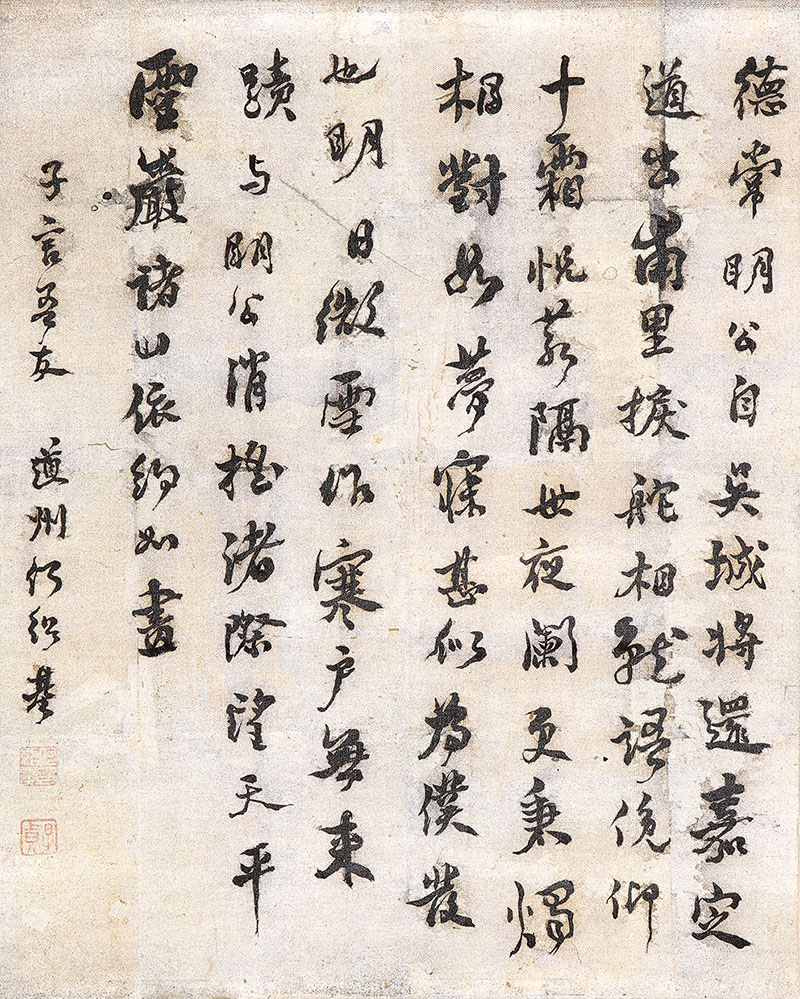 德常明公自吳城將還嘉定
道出甫里捩舵相就語俛仰
十霜恍若隔世夜闌更秉燭
相對如夢寐甚似為僕發
也明日微雪作寒戶無來
蹟与明公消搖渚際望天平
靈巖諸山依約如畫
子言吾友 道州何紹基
子貞